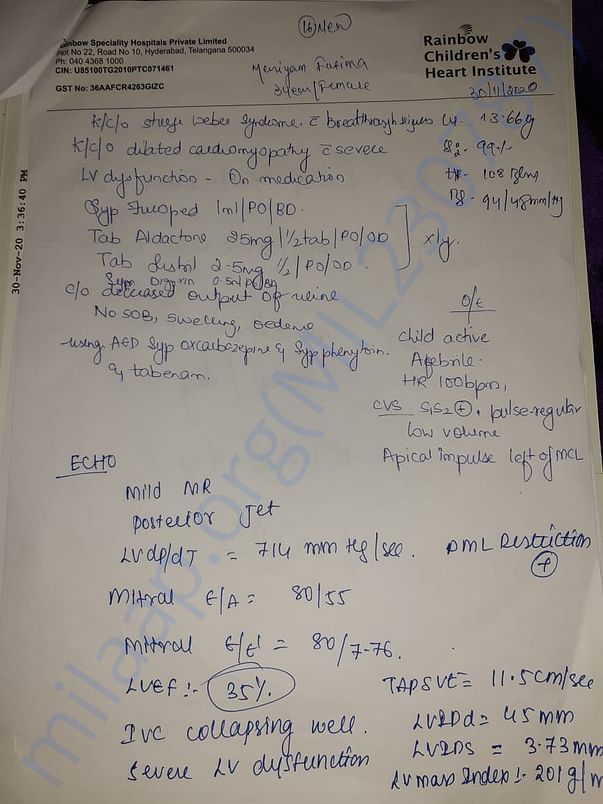 (16) New
Rainbow Speciality Hospitals Private Limited
Plot No 22, Road No 10, Hyderabad, Telangana 500034
Ph: 040 4368 1000
CIN: U85100TG2010PTC071461
GST No: 36AAFCR4263GIZC
Rainbow
Children's
Heart Institute
Meriyam Fatima
Female
30/11/2020
30-Nov-20 3:36:40 PM
K/c/o sturge weber syndrome. c̄ breakthrough
K/c/o dilated cardiomyopathy c̄ severe
LV dysfunction - On medication
13.66
99%
HR- 108 B/mg
94/48mm/Hg
Syp 1ml/PO/BD.
Tab Aldactone 25mg/½tab/PO/OD
Tab 2.5mg ½/PO/OD.
x1y.
Syp Digoxin 0.5ml
c/o decreased output of urine
No SOB, swelling, oedema
-using AED Syp oxcarbazepine & Syp phenytoin.
O/E
child active
Afebrile.
HR 100bpm,
CVS S1S2 (+), pulse-regular
low volume
Apical impulse left of MCL
ECHO
Mild MR
Posterior Jet
LVdp/dT = 714 mm Hg/sec. PML Restriction
(+)
Mitral E/A = 80/55
Mitral E/E' = 80/7.76.
LVEF :- 35%.
IVC collapsing well.
Severe LV dysfunction
TAPSVE = 11.5cm/sec
LVIDd = 45 mm
LVIDS = 3.73mm
LV mass Index :- 201g/m
milaap.org(MIL230787)